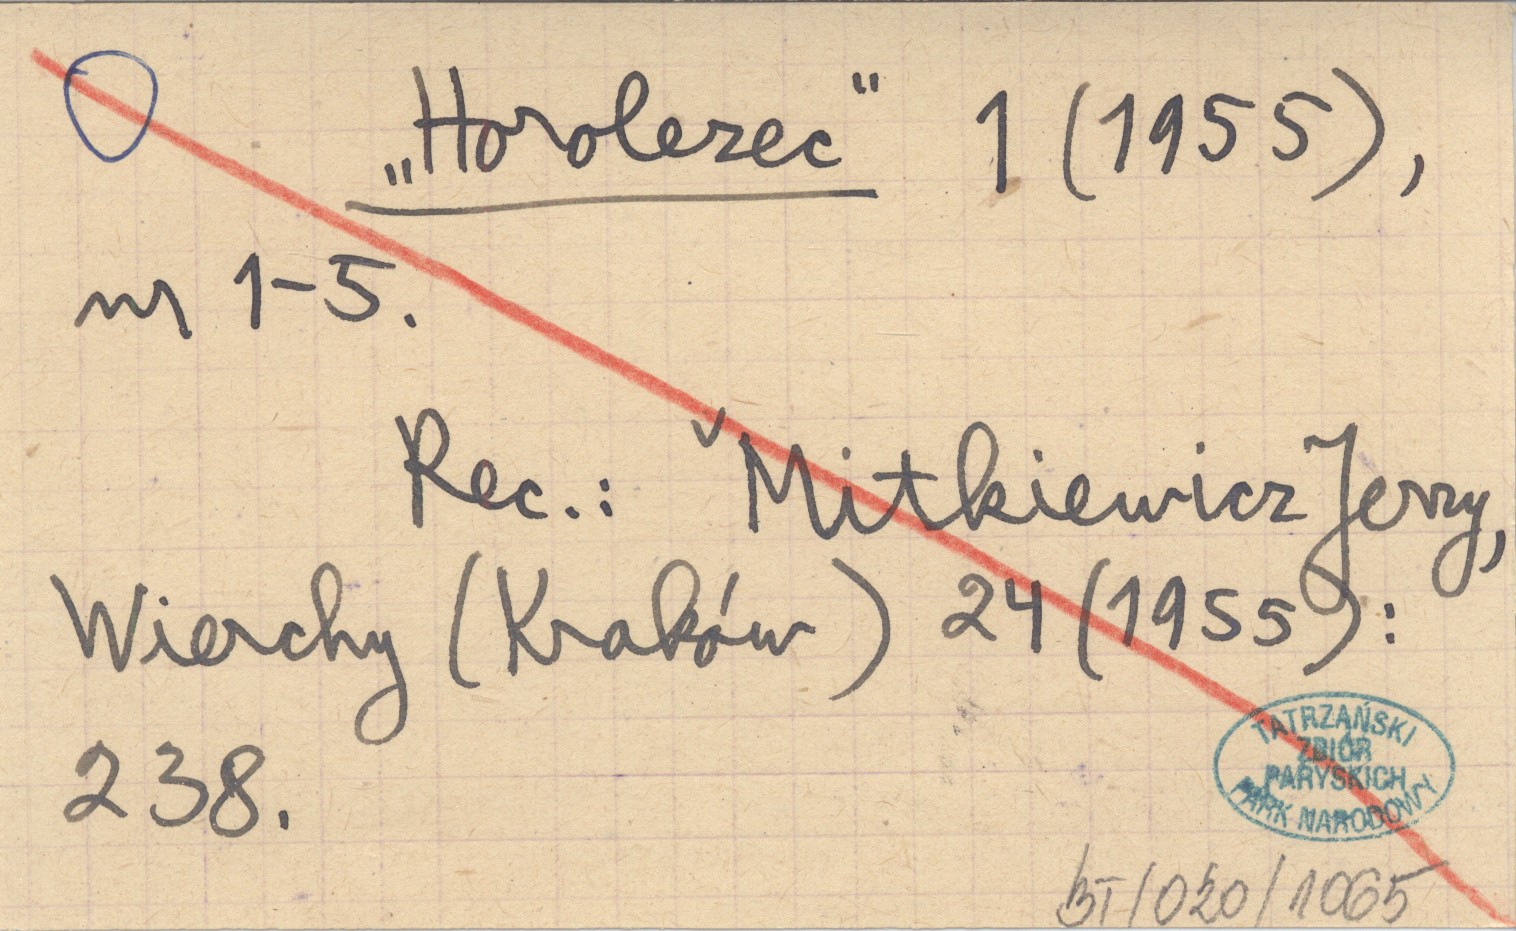 „Horolezec" 1 (1955),
nr 1-5.
Rec.: Mitkiewicz Jerzy,
Wierchy (Kraków) 24 (1955):
238.
TATRZAŃSKI
ZBIÓR
PARYSKICH
PARK NARODOWY
BT/020/1065